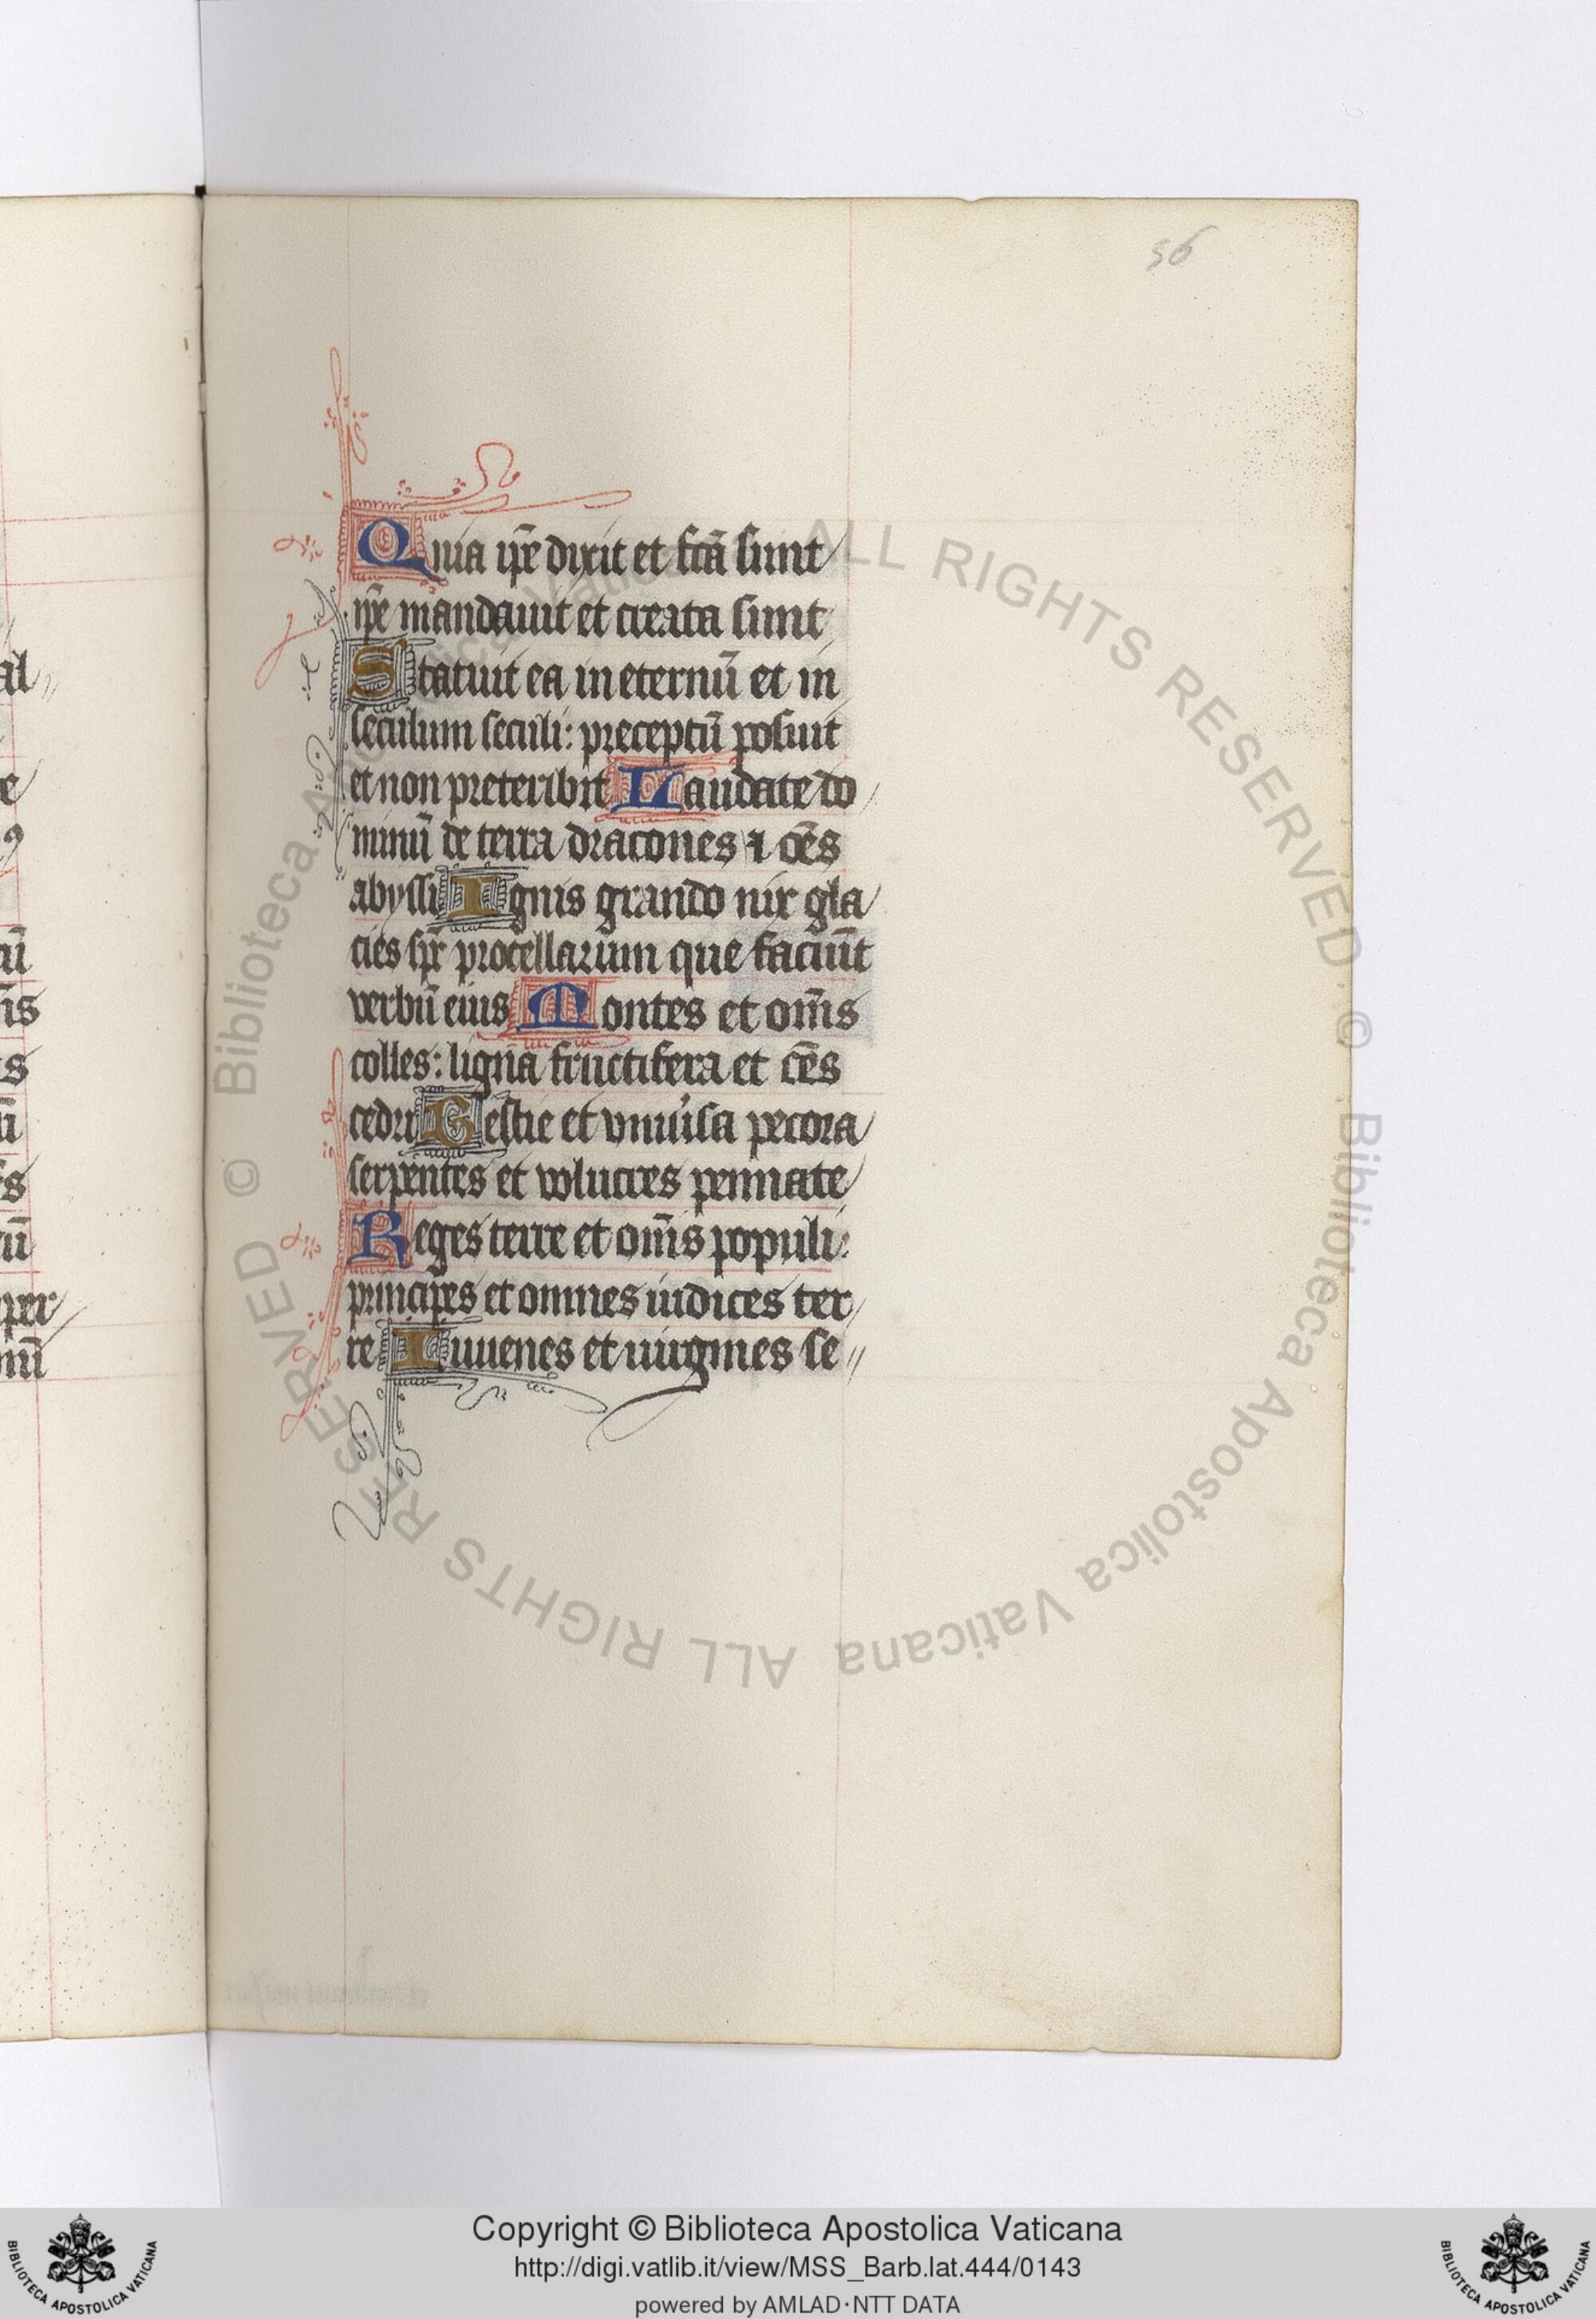 56
Quia ip̄e dixit et fc̄a sunt
ip̄e mandauit et creata sunt
Statuit ea in eternū et in
seculum seculi: preceptū posuit
et non preteribit Laudate do
minū de terra dracones ⁊ oēs
abyssi Ignis grando nix gla
cies sp̄r procellarum que faciūt
verbū eius Montes et om̄s
colles: ligna fructifera et oēs
cedri Bestie et vniu'sa pecora
serpentes et volucres pennate
Reges terre et om̄s populi:
principes et omnes iudices ter
re Iuuenes et uirgines se
al
e
cū
s
ū
per
© Biblioteca Apostolica Vaticana ALL RIGHTS RESERVED © Biblioteca Apostolica Vaticana ALL RIGHTS RESERVED
Copyright © Biblioteca Apostolica Vaticana
http://digi.vatlib.it/view/MSS_Barb.lat.444/0143
powered by AMLAD·NTT DATA
BIBLIOTECA APOSTOLICA VATICANA
BIBLIOTECA APOSTOLICA VATICANA